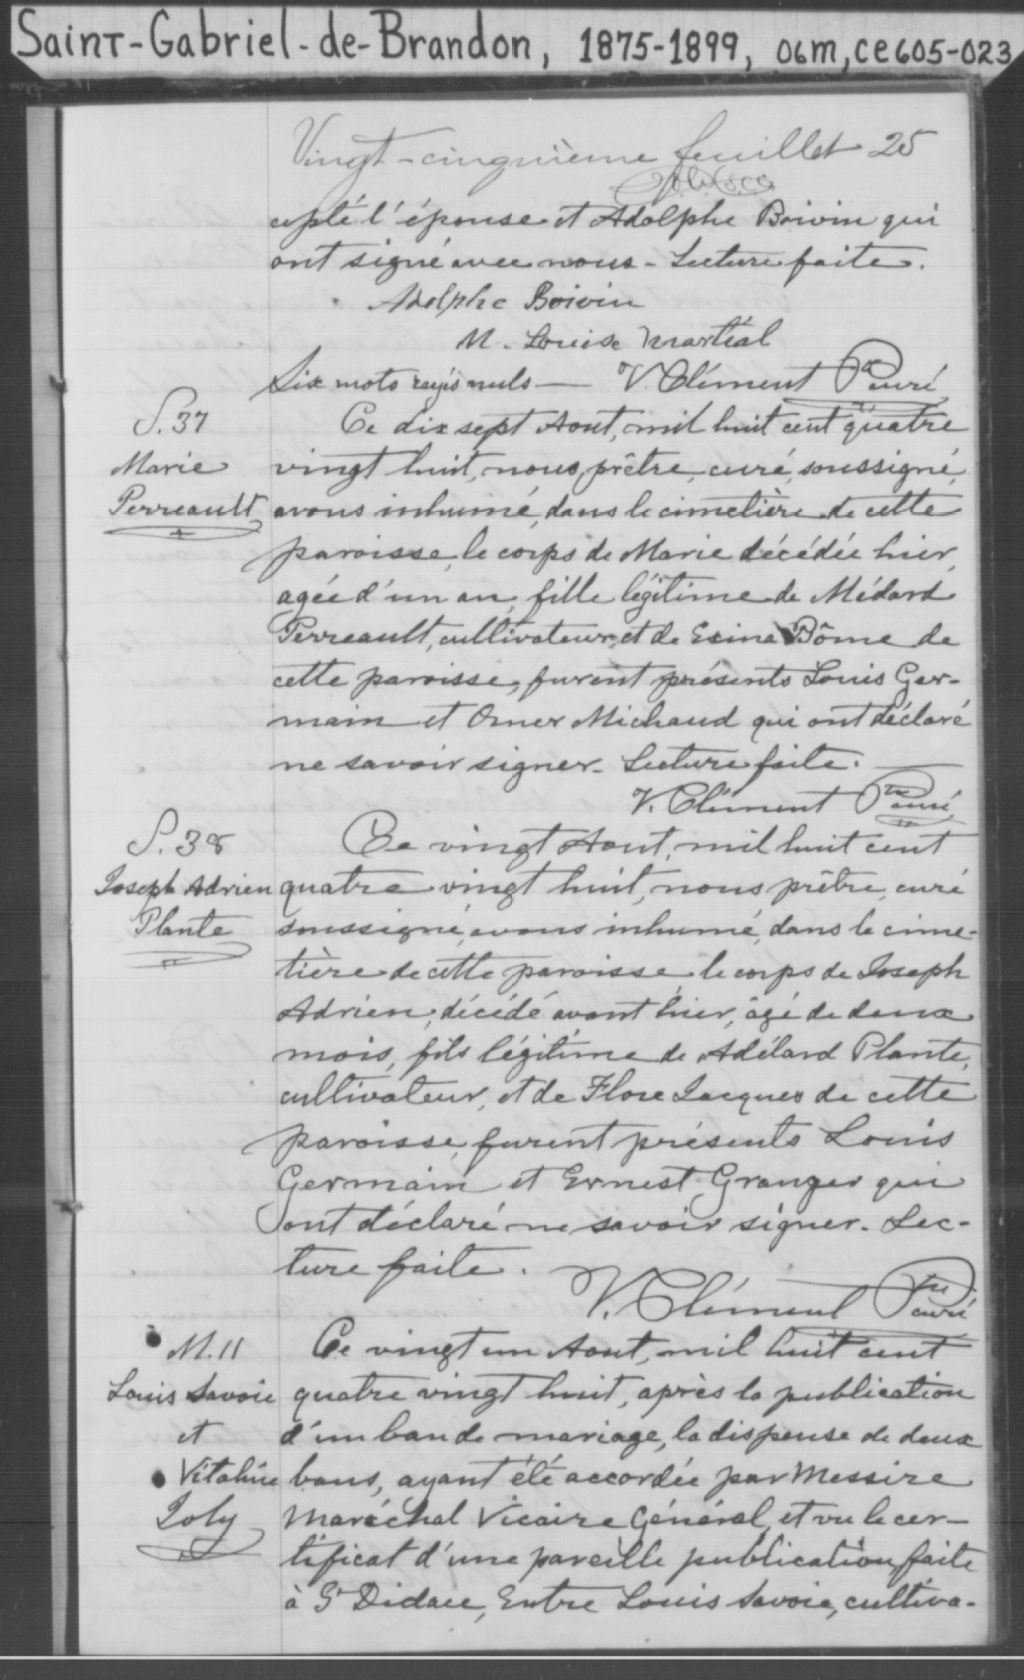 Saint-Gabriel-de-Brandon, 1875-1899, 06m, ce605-023
Vingt-cinquième feuillet 25
cepté l'épouse et Adolphe Boivin qui
ont signé avec nous - Lecture faite.
Adolphe Boivin
M. Louise Martial
Six mots rayés nuls — V. Clément Ptre curé
S. 37
Marie
Perreault
Ce dix sept Aout, mil huit cent quatre
vingt huit, nous, prêtre, curé, soussigné,
avons inhumé, dans le cimetière de cette
paroisse, le corps de Marie décédée hier,
agée d'un an, fille légitime de Médard
Perreault, cultivateur, et de Exina Bôme de
cette paroisse, furent présents Louis Ger-
main et Omer Michaud qui ont déclaré
ne savoir signer - Lecture faite.
V. Clément Ptre curé
S. 38
Joseph Adrien
Plante
Ce vingt Aout, mil huit cent
quatre vingt huit, nous prêtre, curé
soussigné, avons inhumé, dans le cime-
tière de cette paroisse, le corps de Joseph
Adrien, décédé avant hier, âgé de deux
mois, fils légitime de Adélard Plante,
cultivateur, et de Flore Jacques de cette
paroisse, furent présents Louis
Germain et Ernest Granger qui
ont déclaré ne savoir signer - Lec-
ture faite.
V. Clément Ptre curé
M. 11
Louis Savoie
et
Vitaline
Joly
Ce vingt un Aout, mil huit cent
quatre vingt huit, après la publication
d'un ban de mariage, la dispense de deux
bans, ayant été accordée par Messire
Maréchal Vicaire Général, et vu le cer-
tificat d'une pareille publication, faite
à St Didace, Entre Louis Savoie, cultiva-